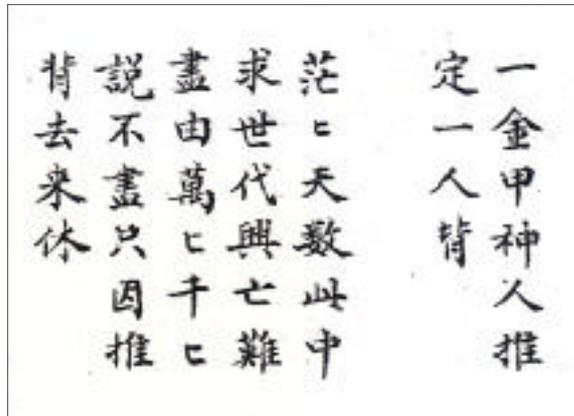 一金甲神人推
定一人背
茫〻天数此中
求世代興亡難
盡由萬〻千〻
説不盡只因推
背去来休